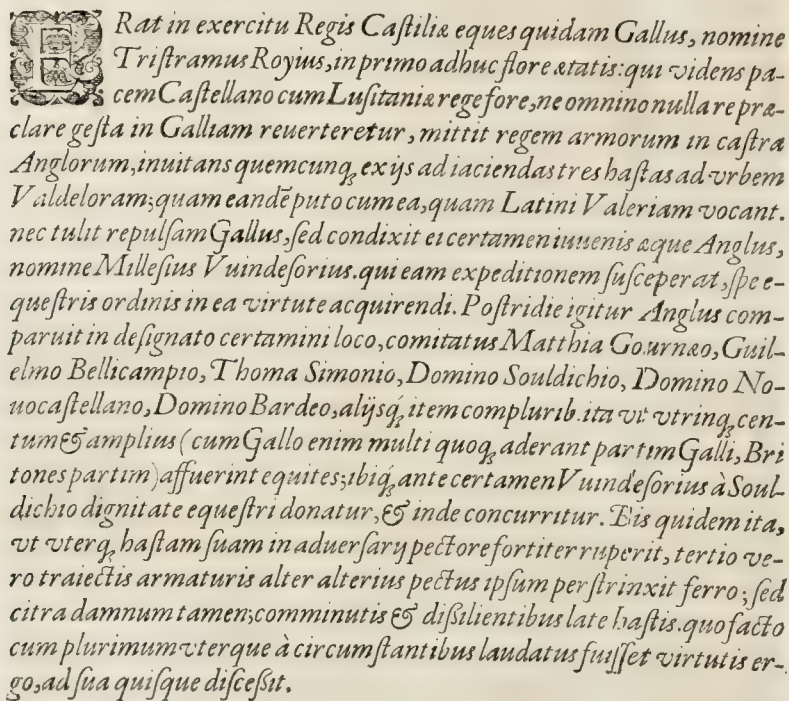 ERat in exercitu Regis Caſtiliæ eques quidam Gallus, nomine
Triſtramus Royius, in primo adhuc flore ætatis: qui videns pa-
cem Caſtellano cum Luſitaniæ rege fore, ne omnino nulla re præ-
clare geſta in Galliam reuerteretur, mittit regem armorum in caſtra
Anglorum, inuitans quemcunq; ex ijs ad iaciendas tres haſtas ad vrbem
Valdeloram; quam eandẽ puto cum ea, quam Latini Valeriam vocant.
nec tulit repulſam Gallus, ſed condixit ei certamen iuuenis æque Anglus,
nomine Milleſius Vuindeſorius. qui eam expeditionem ſuſceperat, ſpe e-
queſtris ordinis in ea virtute acquirendi. Poſtridie igitur Anglus com-
paruit in deſignato certamini loco, comitatus Matthia Gournæo, Guil-
elmo Bellicampio, Thoma Simonio, Domino Souldichio, Domino No-
uocaſtellano, Domino Bardeo, alijsq́; item complurib. ita vt vtrinq; cen-
tum & amplius (cum Gallo enim multi quoq; aderant partim Galli, Bri
tones partim) affuerint equites; ibiq́; ante certamen Vuindeſorius à Soul-
dichio dignitate equeſtri donatur, & inde concurritur. Bis quidem ita,
vt vterq; haſtam ſuam in aduerſarij pectore fortiter ruperit, tertio ve-
ro traiectis armaturis alter alterius pectus ipſum perſtrinxit ferro; ſed
citra damnum tamen; comminutis & diſſilientibus late haſtis. quo facto
cum plurimum vterque à circumſtantibus laudatus fuiſſet virtutis er-
go, ad ſua quiſque diſceſſit.